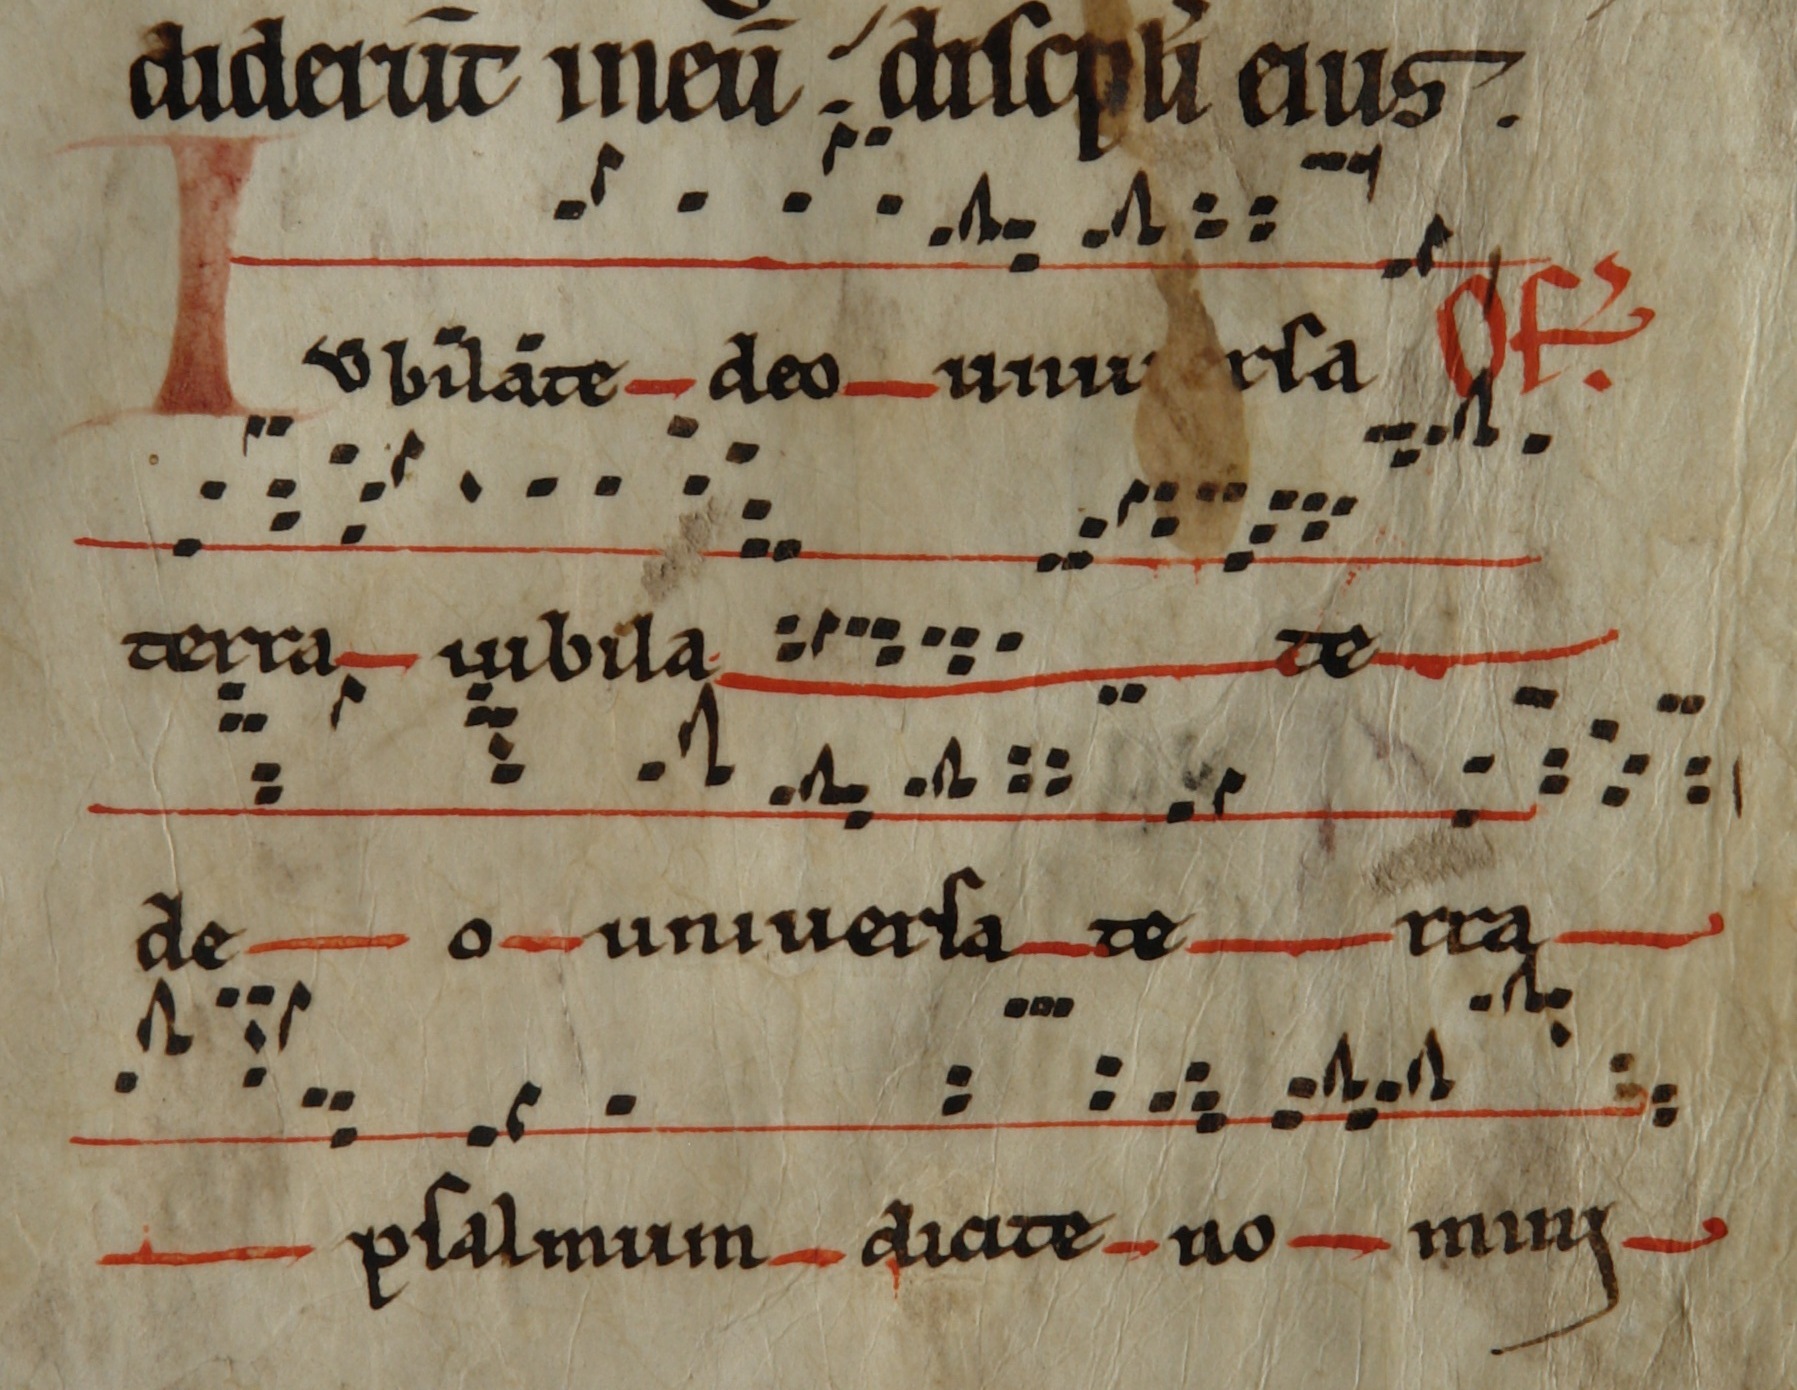 diderūt ineū : discipłi eius .
Of.
Iubilate deo uniuersa
terra iubila te
de o uniuersa te rra
psalmum dicite no mini